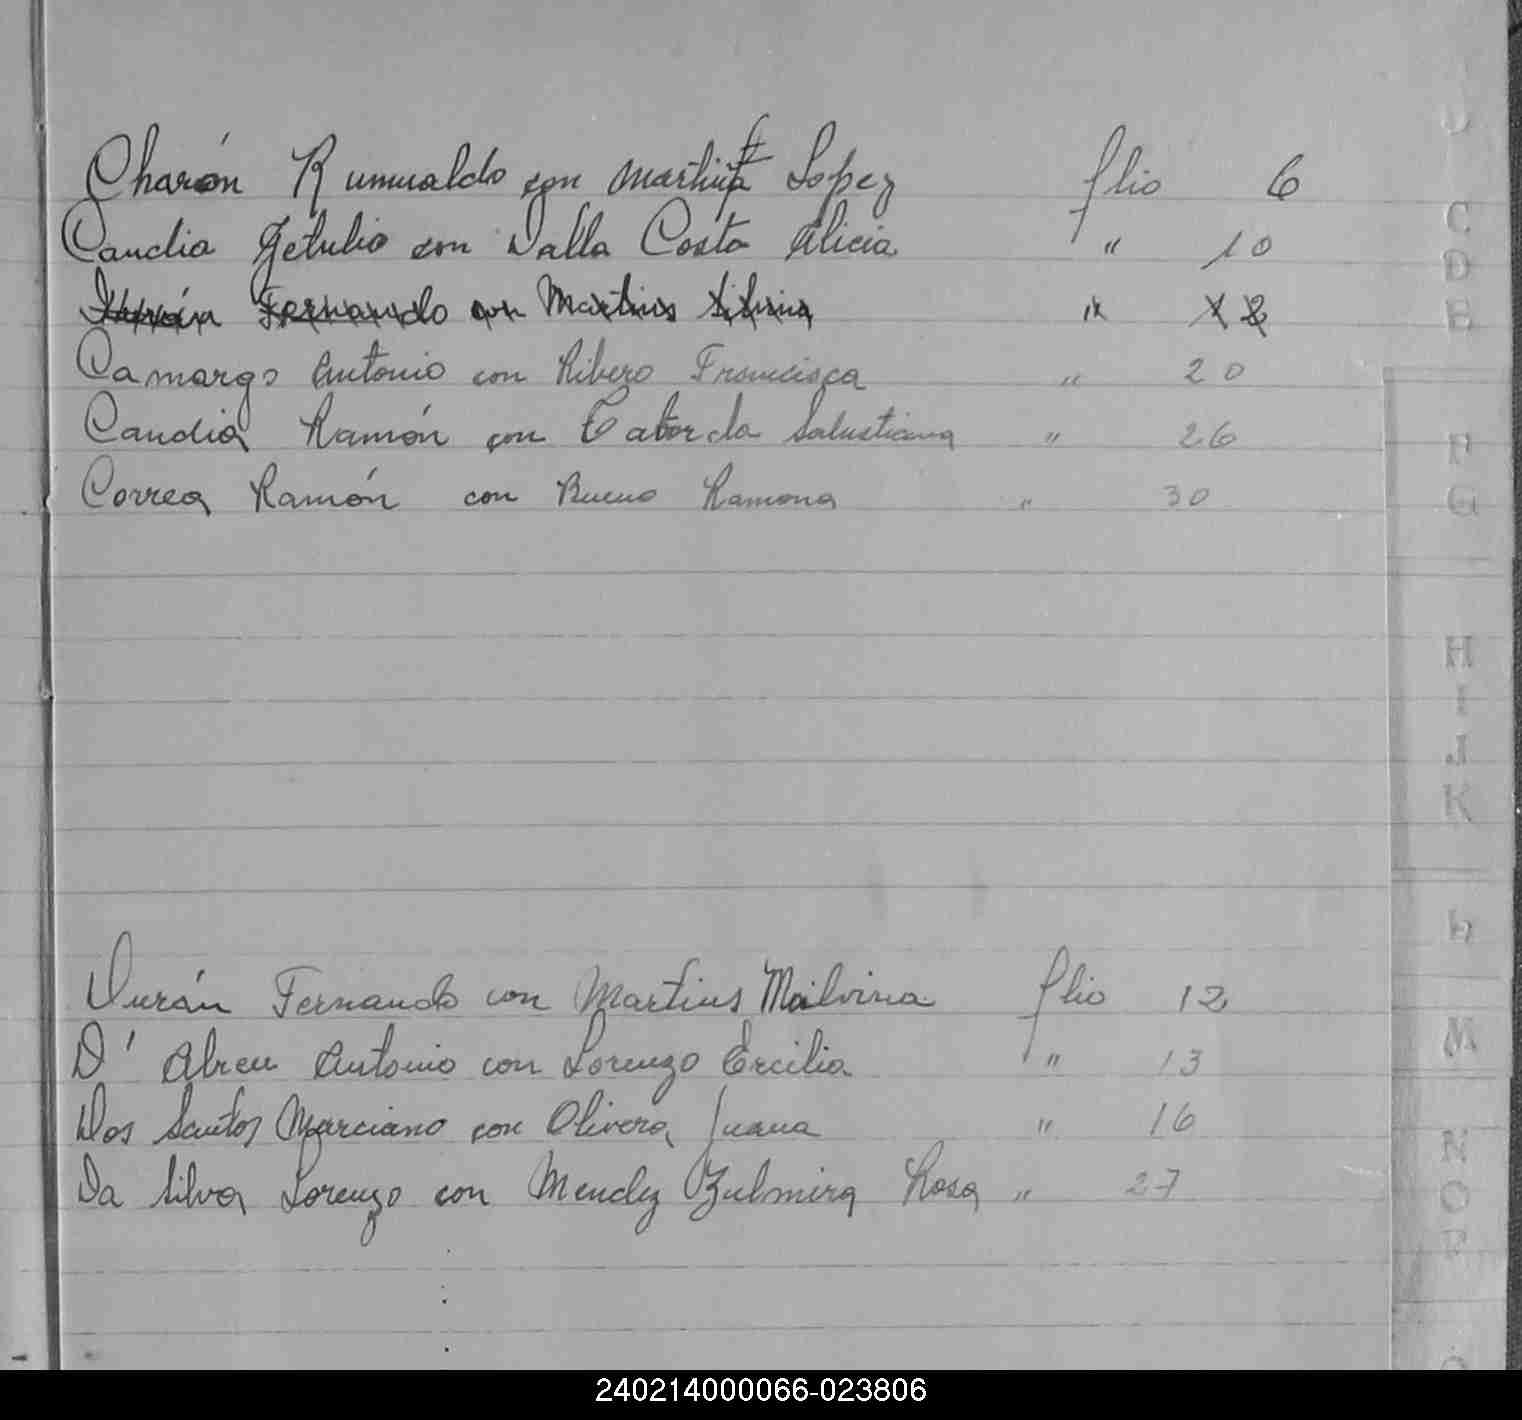 Charón Rumualdo con Martina Lopez flio 6
Candia Getulio con Dalla Costa Alicia " 10
Durán Fernando con Martins Silvina " 12
Camargo Antonio con Ribero Francisca " 20
Candia Ramón con Taborda Salustiana " 26
Correa Ramón con Bueno Ramona " 30
Durán Fernando con Martins Malvina flio 12
D' Abreu Antonio con Lorenzo Ercilia " 13
Dos Santos Marciano con Olivera Juana " 16
Da Silva Lorenzo con Mendez Zulmira Rosa " 27
C
D
E
F
G
H
I
J
K
L
M
N
O
P
240214000066-023806